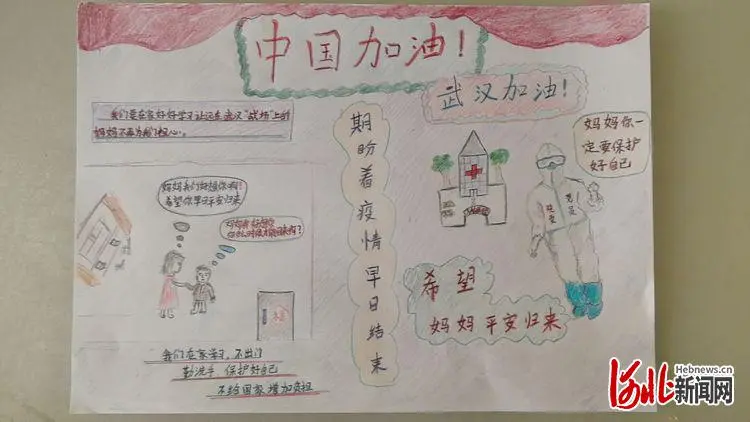 中国加油!
武汉加油!
我们要在家好好学习让远在武汉“战场”上的
妈妈不再为我们担心。
妈妈我们好想你啊!
希望你早日平安归来
期盼着疫情早日结束
妈妈你一
定要保护
好自己
党员
希望
妈妈平安归来
我们在家学习,不出门
勤洗手,保护好自己
不给国家增加负担
河北新闻网
Hebnews.cn